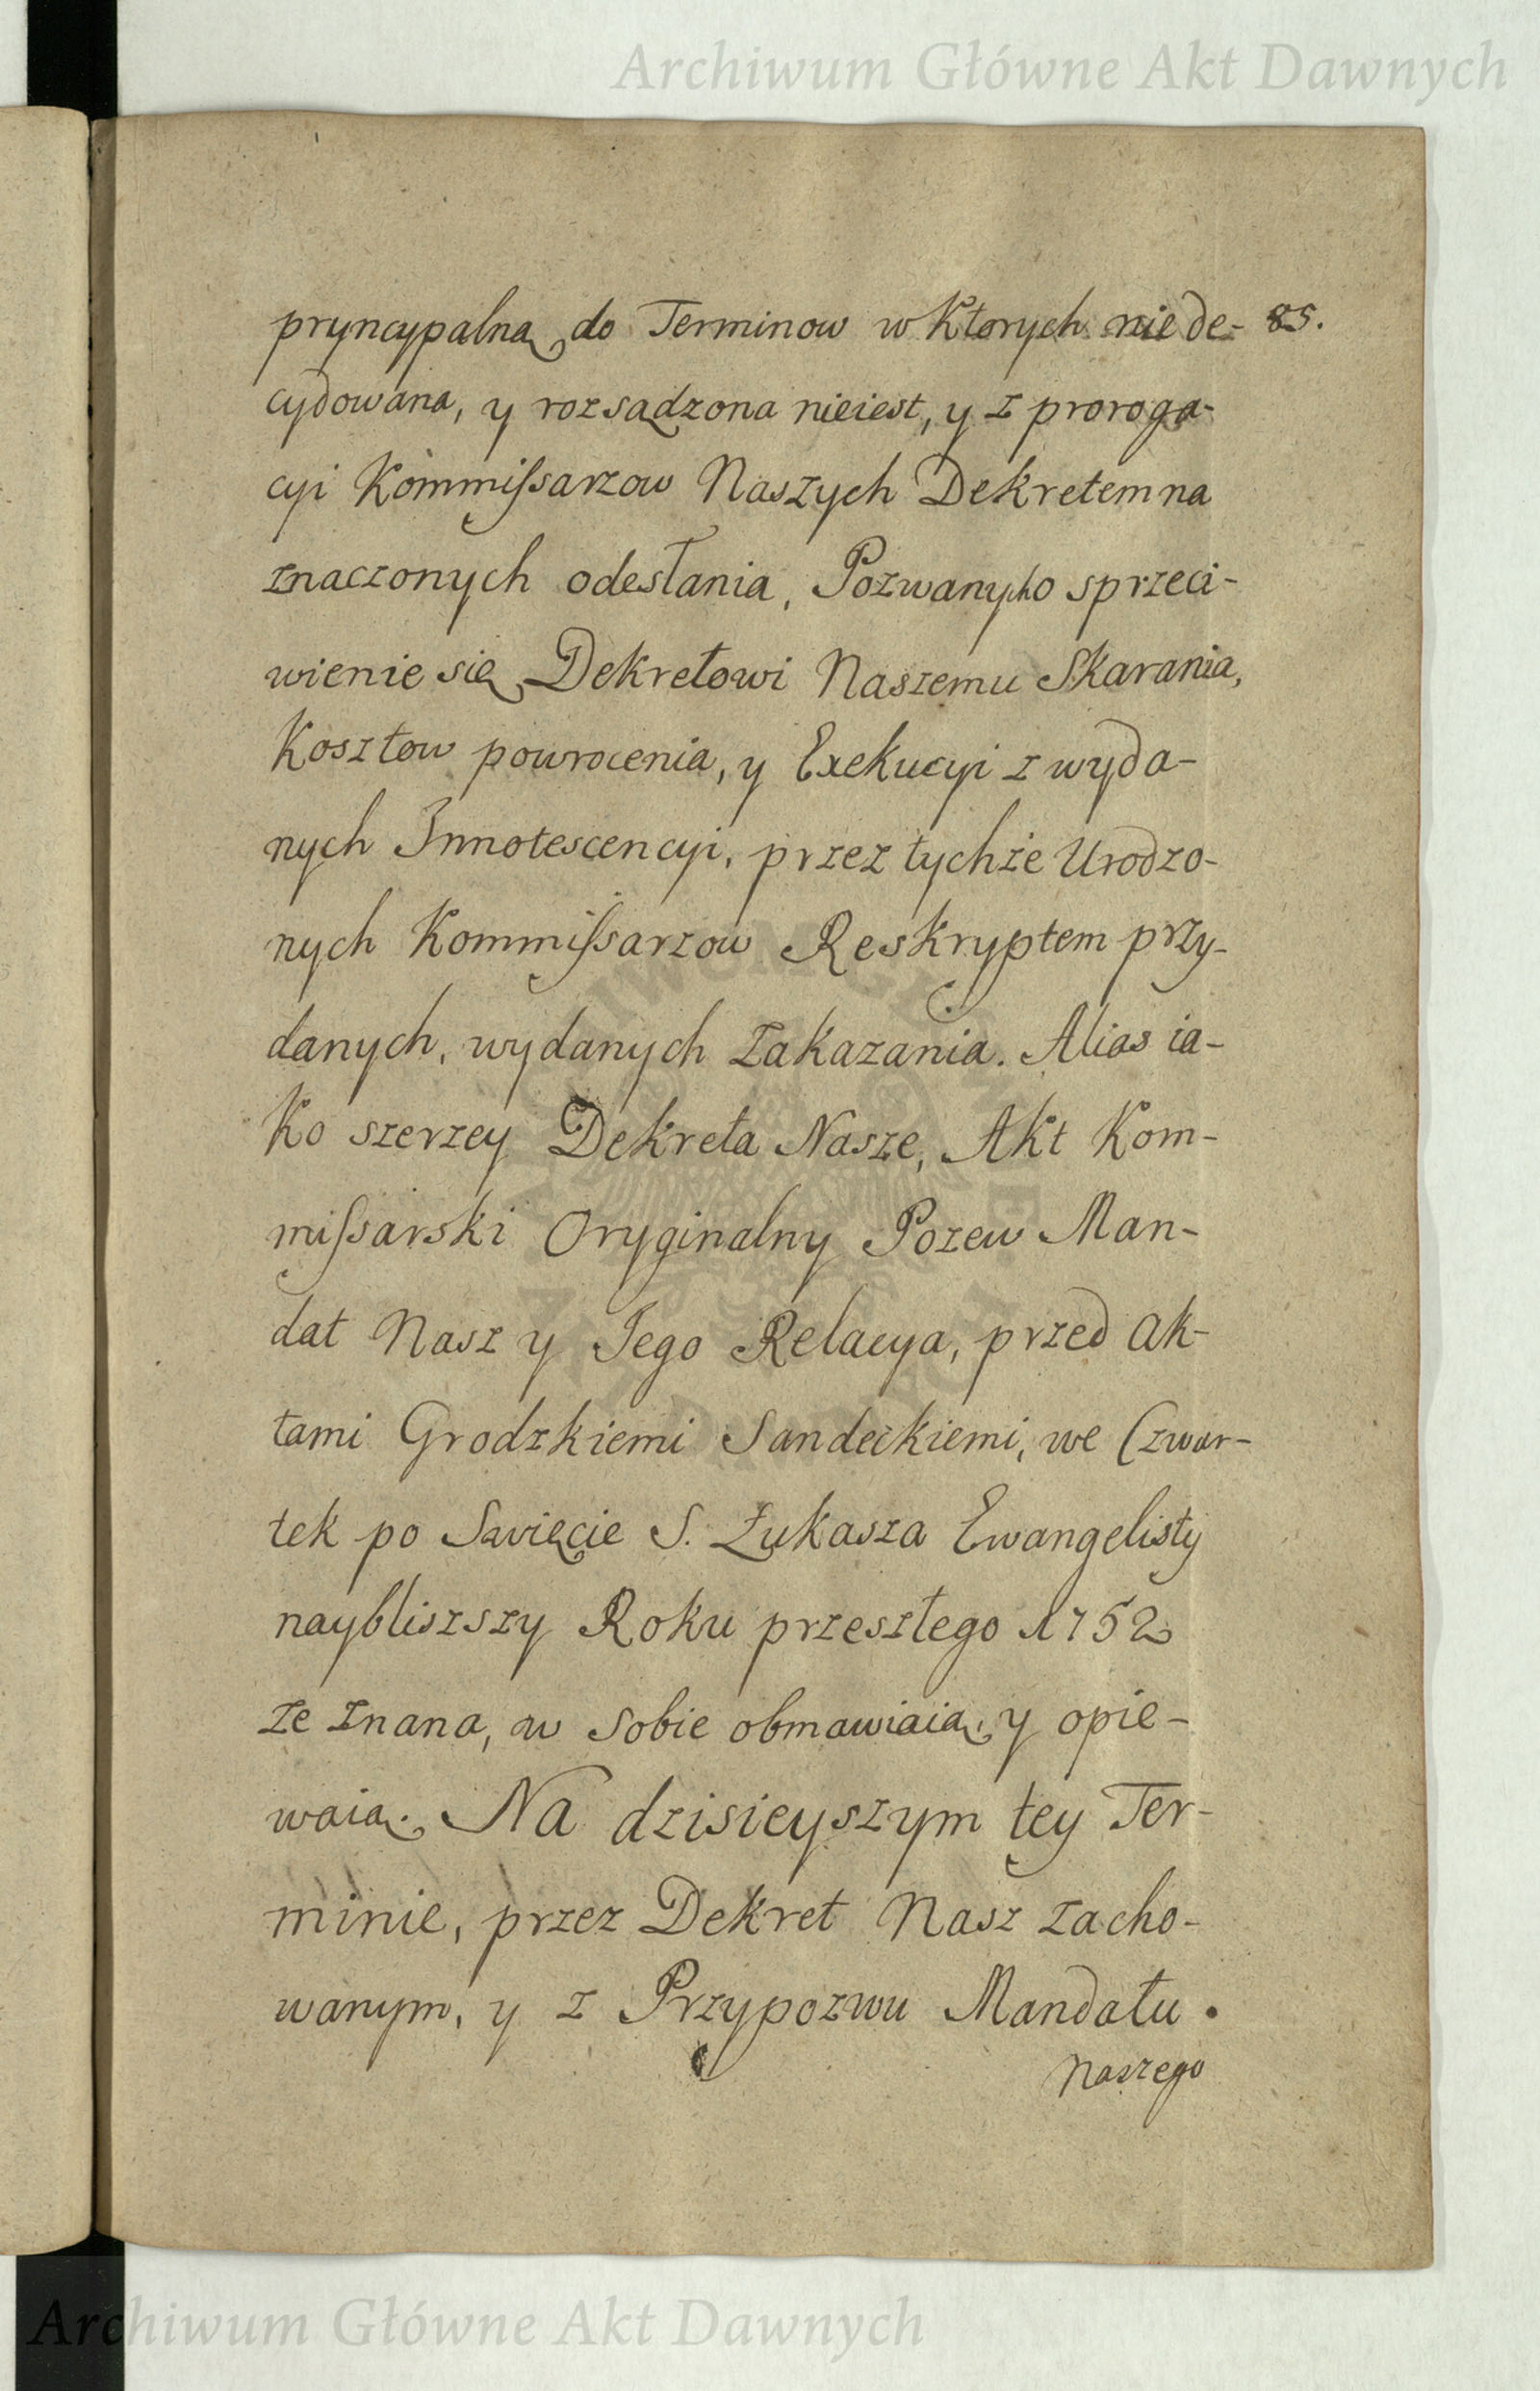 Archiwum Główne Akt Dawnych
pryncypalną do Terminow w Ktorych nie de- 85.
cydowana, y rozsądzona nieiest, y z proroga-
cyi Kommiſsarzow Naszych Dekretem na
znaczonych odesłania, Pozwanych o sprzeci-
wienie się Dekretowi Naszemu Skarania,
Kosztow powrocenia, y Exekucyi z wyda-
nych Innotescencyi, przez tychże Urodzo-
nych Kommiſsarzow Reskryptem przy-
danych, wydanych zakazania. Alias ia-
Ko szerzey Dekreta Nasze, Akt Kom-
miſsarski Oryginalny Pozew Man-
dat Nasz y Jego Relacya, przed Ak-
tami Grodzkiemi Sandeckiemi, we Czwar-
tek po Swięcie S. Łukasza Ewangelisty
naybliszszy Roku przeszłego 1752
ze znana, w sobie obmawiaią, y opie-
waią. Na dzisieyszym tey Ter-
minie, przez Dekret Nasz zacho-
wanym, y z Przypozwu Mandatu.
Naszego
Archiwum Główne Akt Dawnych